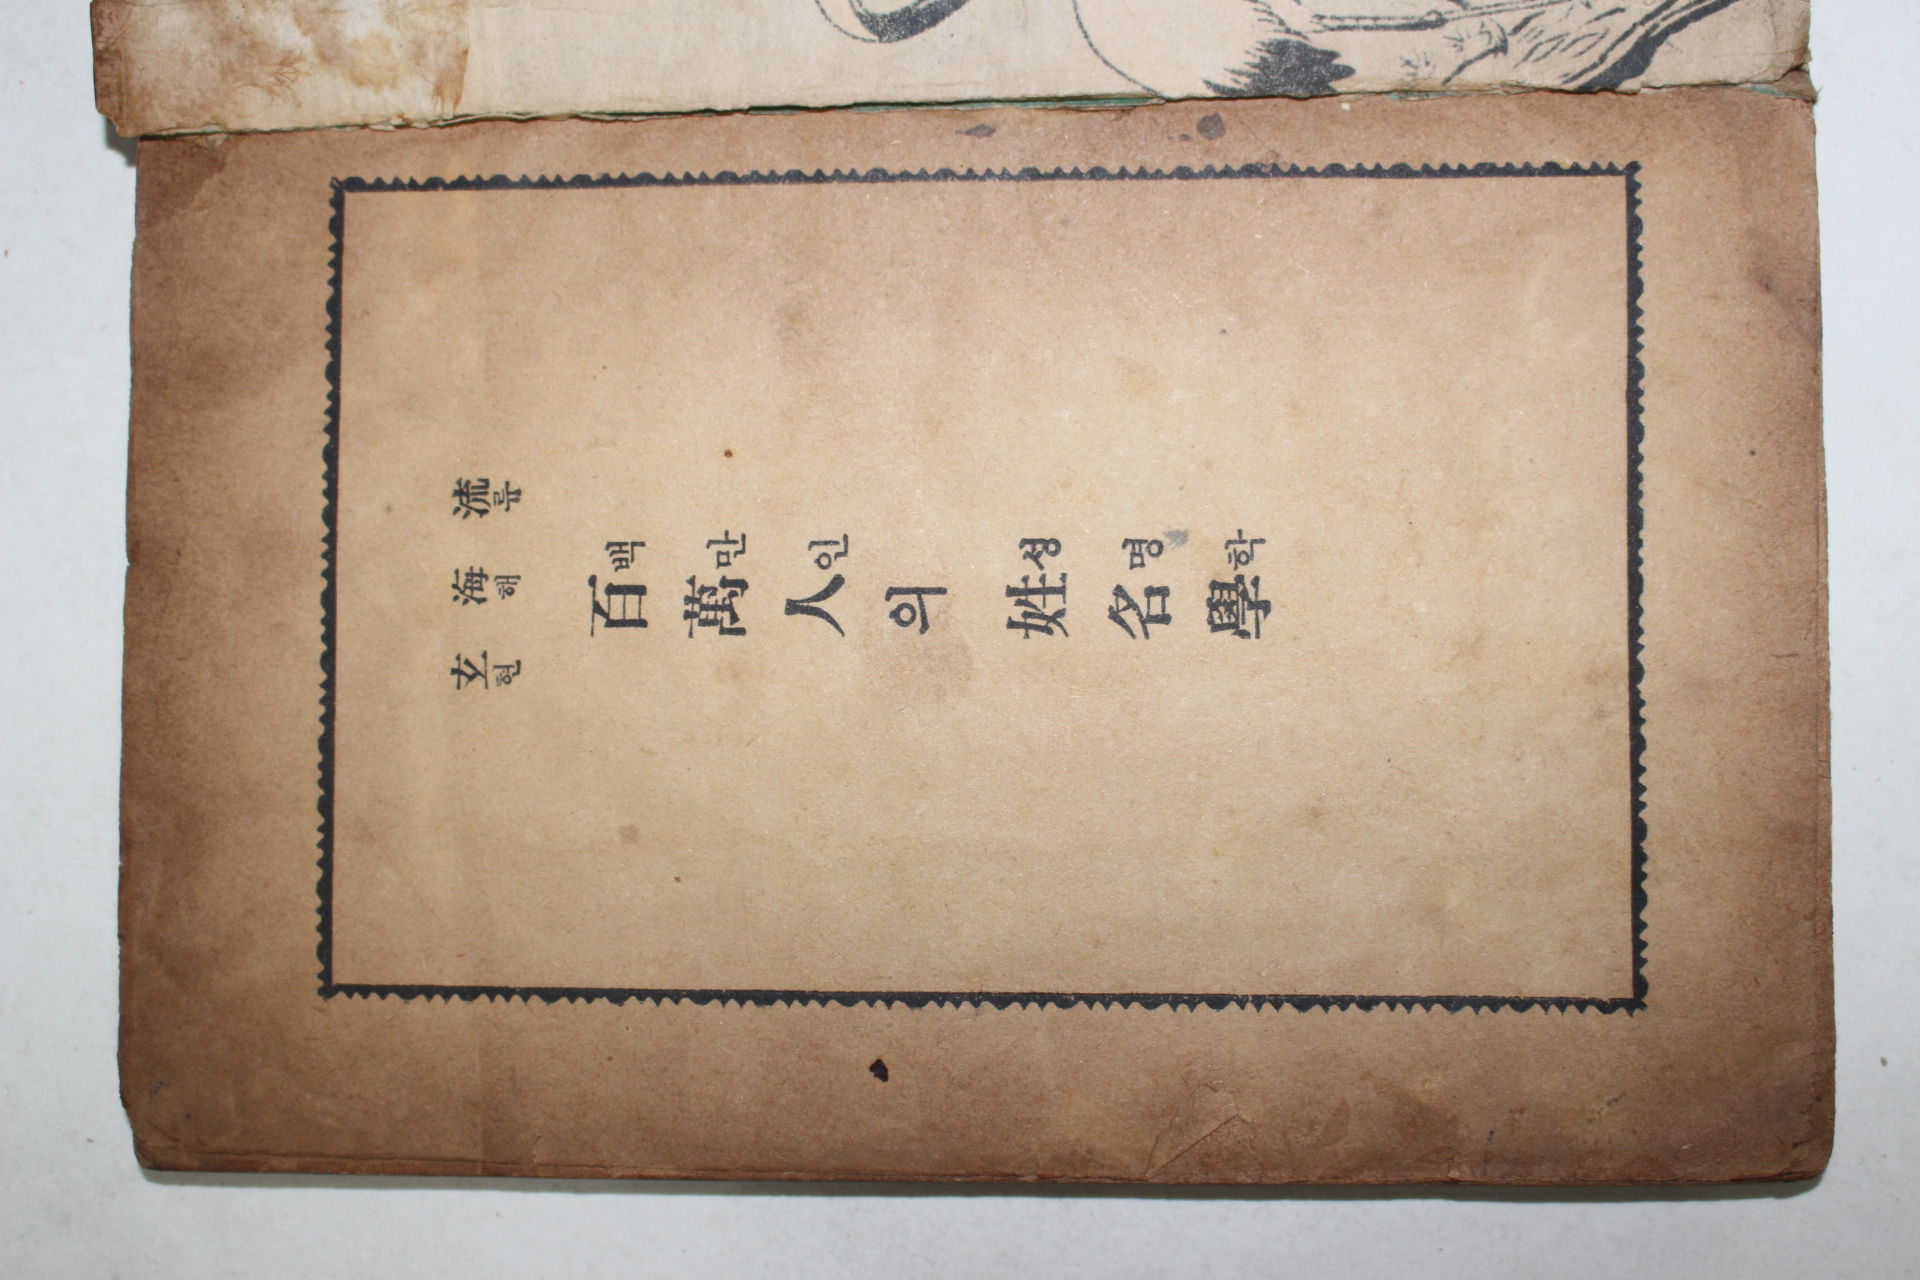 玄海流
현해류
百萬人의 姓名學
백만인 성명학